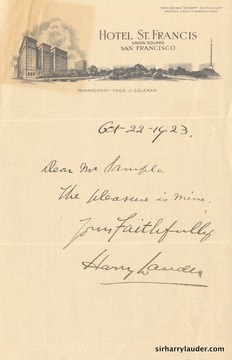 HOTEL ST. FRANCIS
UNION SQUARE
SAN FRANCISCO
MANAGEMENT - THOS. J. COLEMAN
Oct-22-1923.
Dear Mr Sample
The pleasure is mine.
Yours Faithfully
Harry Lauder
sirharrylauder.com